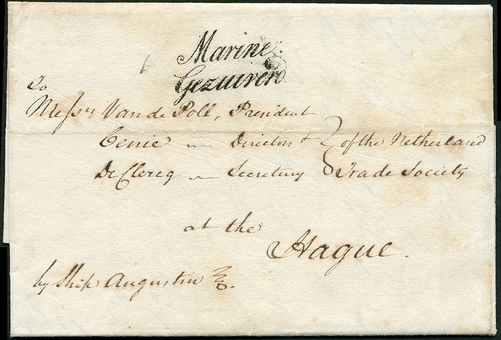 Marine
Gezuiverd
To
Messrs Van de Poll, President
Director } of the Netherland
De Clercq " Secretary } Trade Society
at the
Hague.
by Ship Augustin